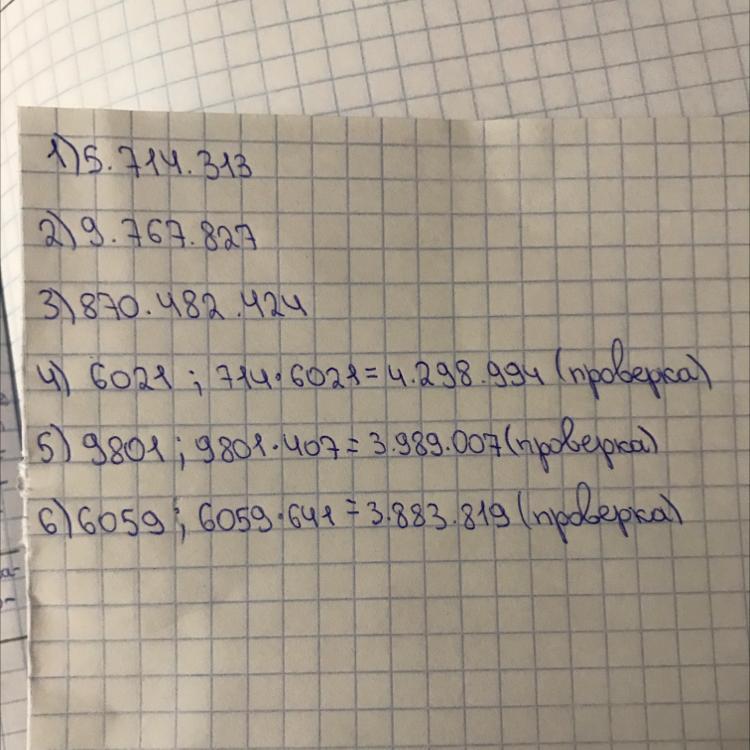 1) 5.714.313
2) 9.767.827
3) 870.482.424
4) 6021 ; 714·6021=4.298.994 (проверка)
5) 9801 ; 9801·407=3.989.007 (проверка)
6) 6059 ; 6059·641=3.883.819 (проверка)